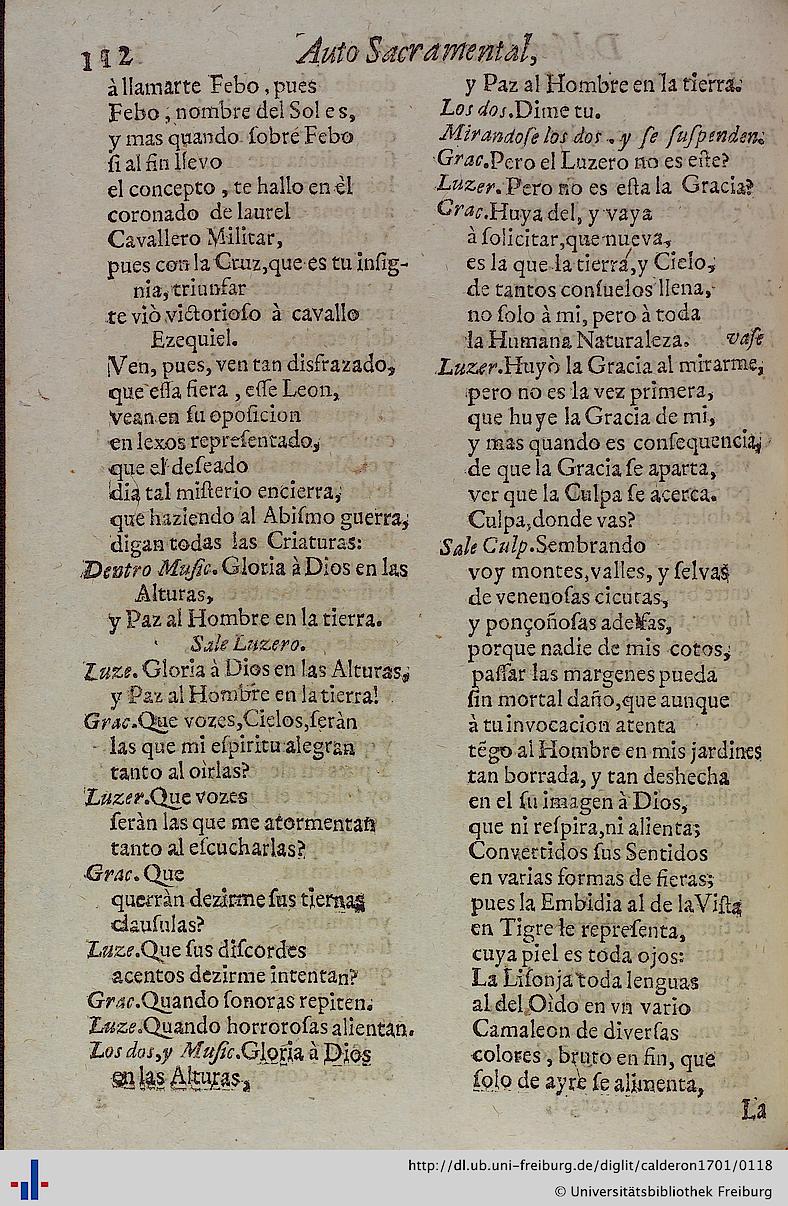 112 Auto Sacramental,
à llamarte Febo, pues
Febo, nombre del Sol es,
y mas quando ſobre Febo
ſi al fin llevo
el concepto, te hallo en èl
coronado de laurel
Cavallero Militar,
pues con la Cruz, que es tu inſig-
nia, triunfar
te viò victorioſo à cavallo
Ezequiel.
Ven, pues, ven tan disfrazado,
que eſſa fiera, eſſe Leon,
vean en ſu opoſicion
en lexos repreſentado,
que el deſeado
dia tal miſterio encierra,
que haziendo al Abiſmo guerra,
digan todas las Criaturas:
Dentro Muſic. Gloria à Dios en las
Alturas,
y Paz al Hombre en la tierra.
Sale Luzero.
Luze. Gloria à Dios en las Alturas,
y Paz al Hombre en la tierra!
Grac. Que vozes, Cielos, ſeràn
las que mi eſpiritu alegran
tanto al oirlas?
Luzer. Que vozes
ſeràn las que me atormentan
tanto al eſcucharlas?
Grac. Que
querràn dezirme ſus tiernas
clauſulas?
Luze. Que ſus diſcordes
acentos dezirme intentan?
Grac. Quando ſonoras repiten.
Luze. Quando horroroſas alientan.
Los dos, y Muſic. Gloria à Dios
en las Alturas,
y Paz al Hombre en la tierra.
Los dos. Dime tu.
Mirandoſe los dos, y ſe ſuſpenden.
Grac. Pero el Luzero no es eſte?
Luzer. Pero no es eſta la Gracia?
Grac. Huya del, y vaya
à ſolicitar, que nueva,
es la que la tierra, y Cielo,
de tantos conſuelos llena,
no ſolo à mi, pero à toda
la Humana Naturaleza. vaſe
Luzer. Huyò la Gracia al mirarme,
pero no es la vez primera,
que huye la Gracia de mi,
y mas quando es conſequencia,
de que la Gracia ſe aparta,
ver que la Culpa ſe acerca.
Culpa, donde vas?
Sale Culp. Sembrando
voy montes, valles, y ſelvas
de venenoſas cicutas,
y ponçoñoſas adelfas,
porque nadie de mis cotos,
paſſar las margenes pueda
ſin mortal daño, que aunque
à tu invocacion atenta
tẽgo al Hombre en mis jardines
tan borrada, y tan deshecha
en el ſu imagen à Dios,
que ni reſpira, ni alienta;
Convertidos ſus Sentidos
en varias formas de fieras;
pues la Embidia al de la Viſta
en Tigre le repreſenta,
cuya piel es toda ojos:
La Liſonja toda lenguas
al del Oìdo en vn vario
Camaleon de diverſas
colores, bruto en fin, que
ſolo de ayre ſe alimenta,
La
http://dl.ub.uni-freiburg.de/diglit/calderon1701/0118
© Universitätsbibliothek Freiburg